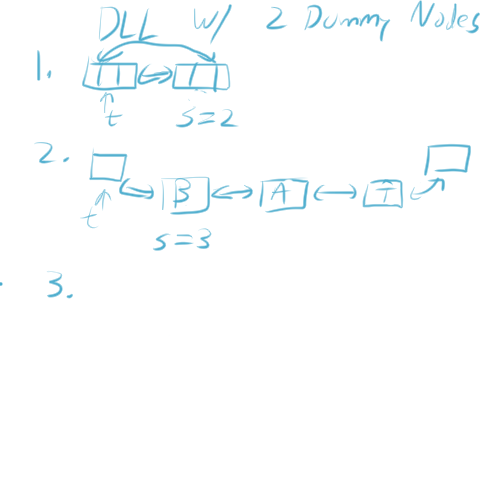 DLL w/ 2 Dummy Nodes
1.
t
s=2
2.
B A T
t
s=3
3.